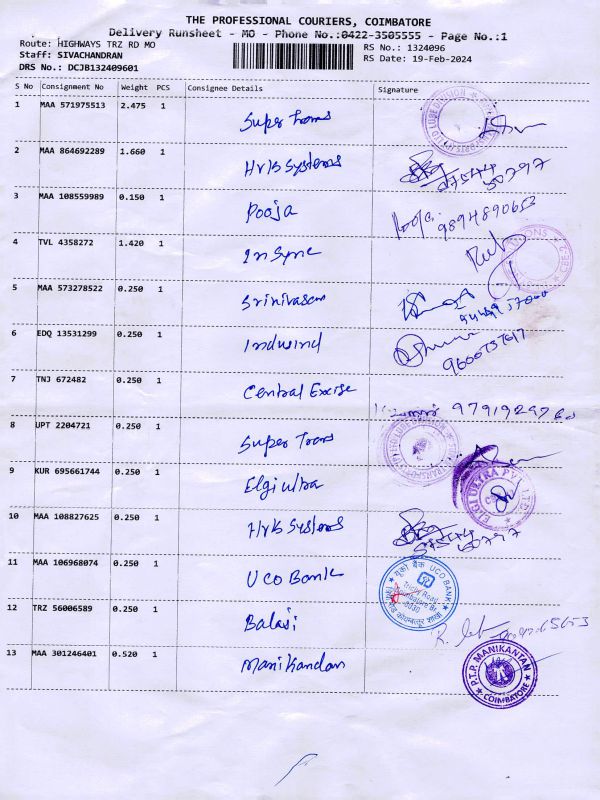 THE PROFESSIONAL COURIERS, COIMBATORE
Delivery Runsheet - MO - Phone No.:0422-3505555 - Page No.:1
Route: HIGHWAYS TRZ RD MO
RS No.: 1324096
Staff: SIVACHANDRAN
RS Date: 19-Feb-2024
DRS No.: DCJB132409601
S No Consignment No Weight PCS Consignee Details Signature
1 MAA 571975513 2.475 1 Super Trans
2 MAA 864692289 1.660 1 Hrb Systems
3 MAA 108559989 0.150 1 Pooja Pooja 9894890653
4 TVL 4358272 1.420 1 In Sync
5 MAA 573278522 0.250 1 Srinivasan
6 EDQ 13531299 0.250 1 Indusind
7 TNJ 672482 0.250 1 Central Excise
8 UPT 2204721 0.250 1 Super Trans
9 KUR 695661744 0.250 1 Elgi ultra ELGI ULTRA PVT LTD
10 MAA 108827625 0.250 1 Hrb Systems
11 MAA 106968074 0.250 1 UCO Bank यूको बैंक UCO BANK
Trichy Road
12 TRZ 56006589 0.250 1 Balaji
13 MAA 301246401 0.520 1 Manikandan P.T.P. MANIKANTAN
COIMBATORE